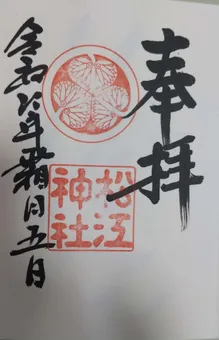 奉拝
松江
神社
令和六年霜月五日